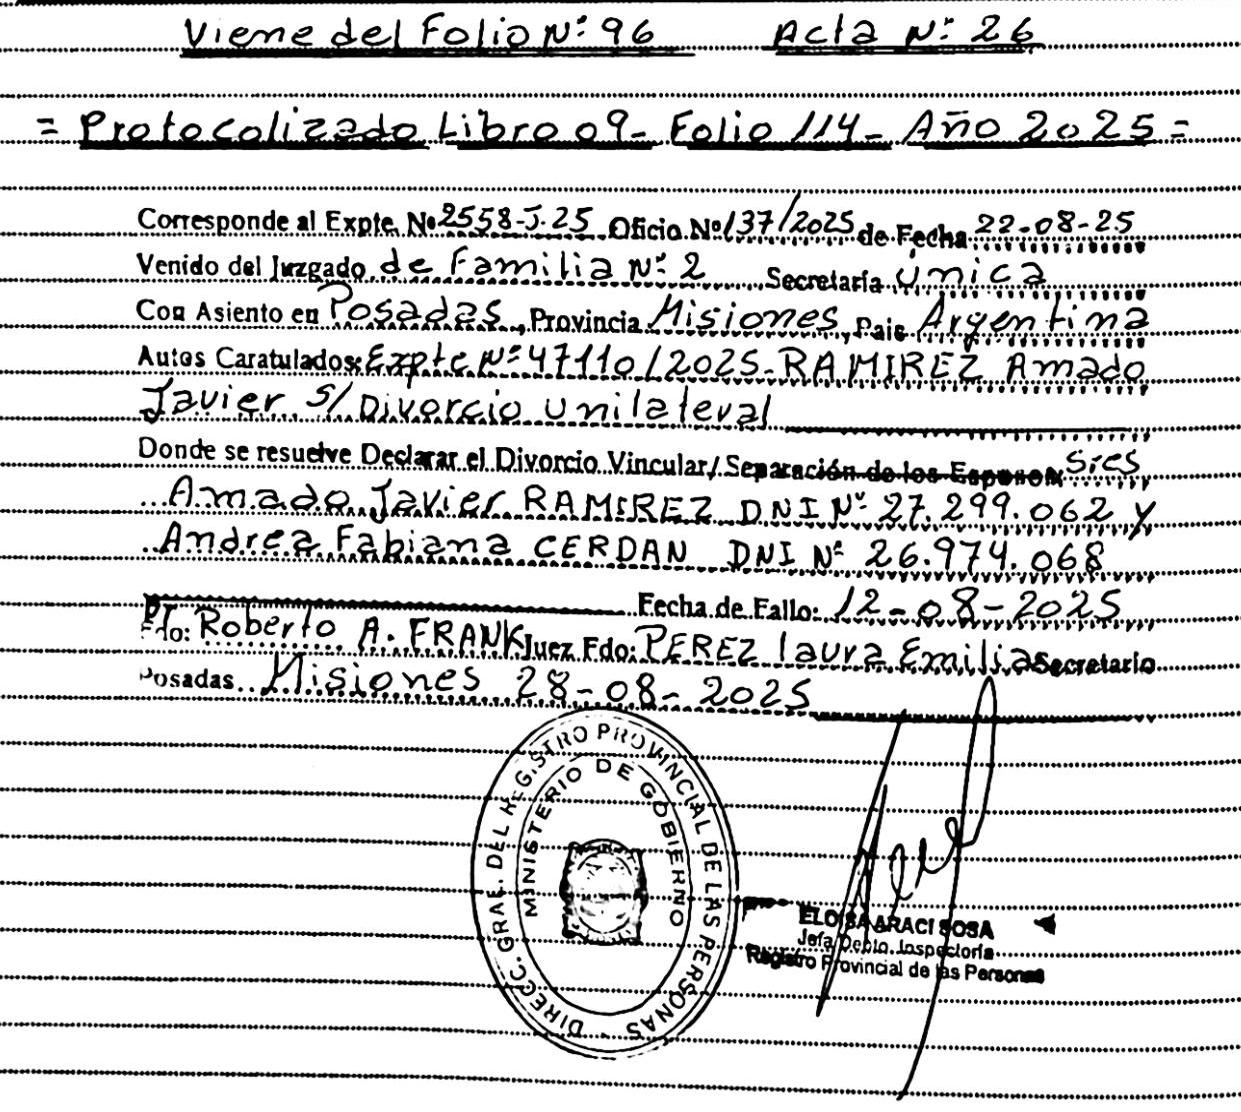 Viene del Folio Nº: 96 Acta Nº: 26
= Protocolizado Libro 09- Folio 114- Año 2025 =
Corresponde al Expte. Nº 2558-J-25 Oficio Nº 137/2025 de Fecha 22-08-25
Venido del Juzgado de Familia Nº: 2 Secretaría única
Con Asiento en Posadas, Provincia Misiones, Pais Argentina
Autos Caratulados: Expte Nº 47110/2025- RAMIREZ Amado
Javier S/ Divorcio Unilateral
Donde se resuelve Declarar el Divorcio Vincular/ Separación de los Esposos: Sres
Amado Javier RAMIREZ DNI Nº 27.299.062 y
Andrea Fabiana CERDAN DNI Nº 26.974.068
Fecha de Fallo: 12-08-2025
Fdo: Roberto A. FRANK Juez Fdo: PEREZ laura Emilia Secretario
Posadas Misiones 28-08-2025
DIRECC. GRAL. DEL REGISTRO PROVINCIAL DE LAS PERSONAS
MINISTERIO DE GOBIERNO
ELOISA ARACI SOSA
Jefa Depto. Inspectoría
Registro Provincial de las Personas